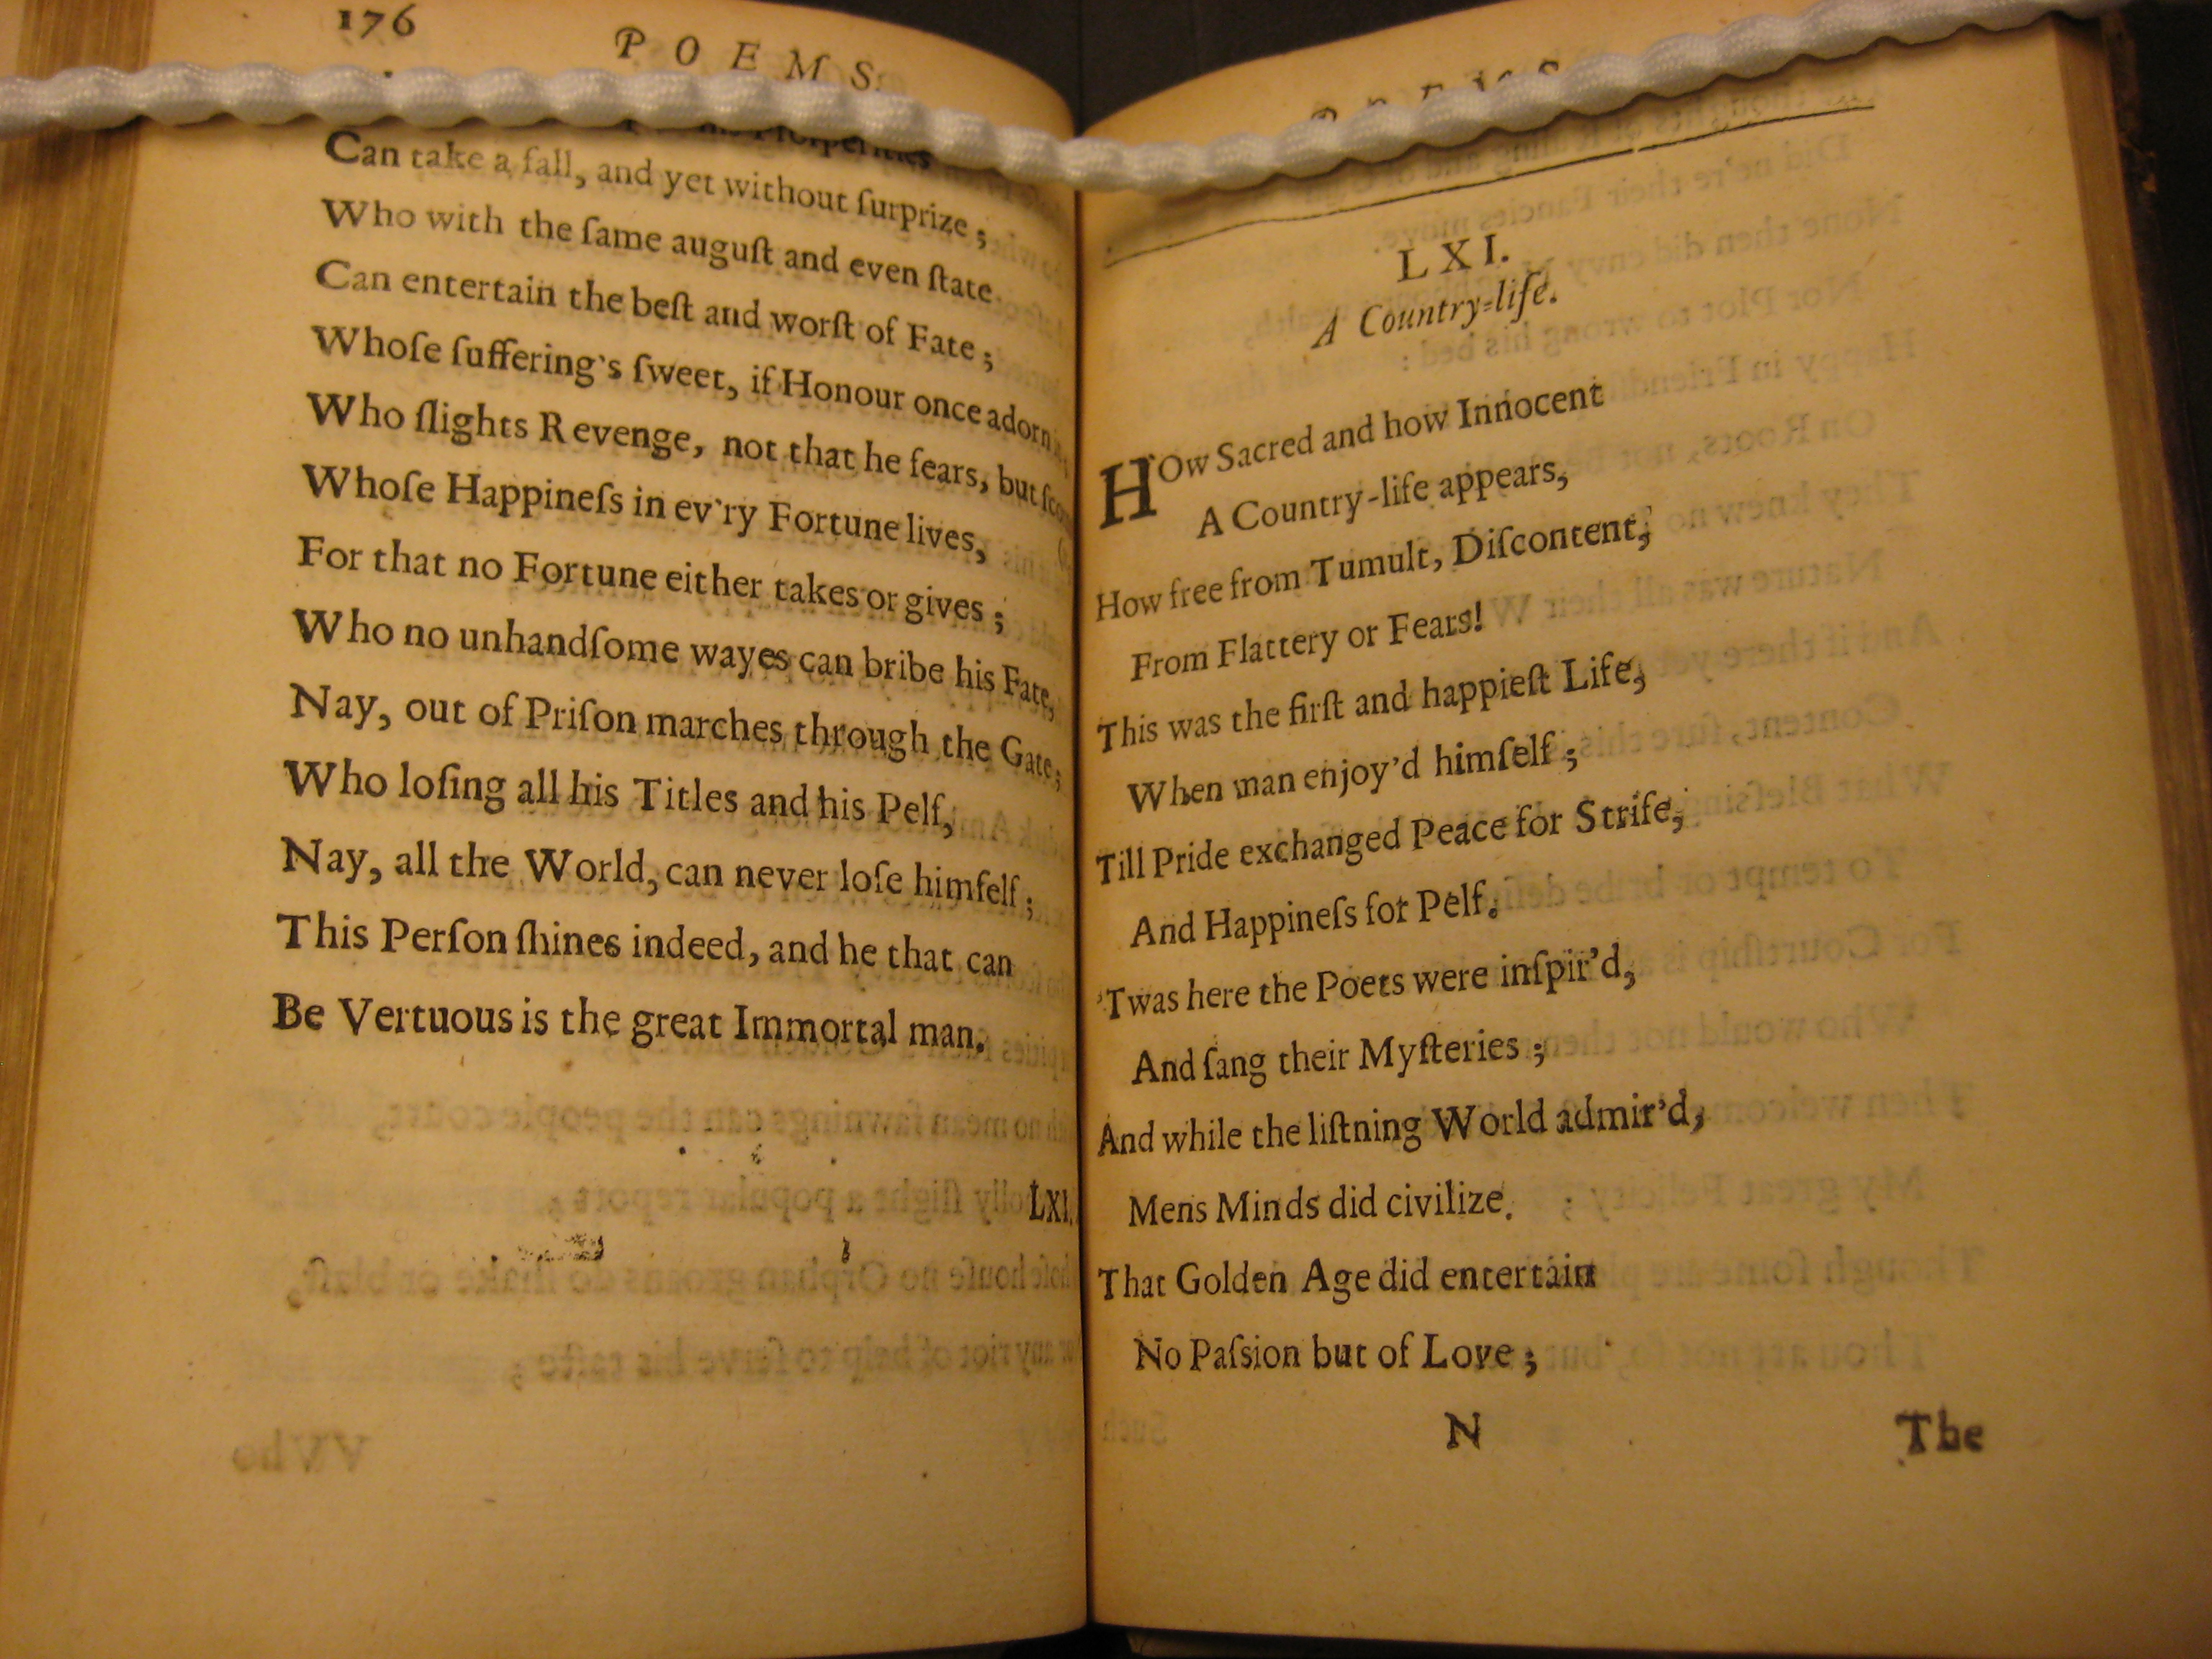 176
POEMS.
Can take a fall, and yet without ſurprize ;
Who with the ſame auguſt and even ſtate
Can entertain the beſt and worſt of Fate ;
Whoſe ſuffering's ſweet, if Honour once adorn
Who ſlights Revenge, not that he fears, but
Whoſe Happineſs in ev'ry Fortune lives,
For that no Fortune either takes or gives ;
Who no unhandſome wayes can bribe his Fate,
Nay, out of Priſon marches through the Gate;
Who loſing all his Titles and his Pelf,
Nay, all the World, can never loſe himſelf ;
This Perſon ſhines indeed, and he that can
Be Vertuous is the great Immortal man.
LXI.
LXI.
A Country-life.
HOw Sacred and how Innocent
A Country-life appears,
How free from Tumult, Diſcontent,
From Flattery or Fears!
This was the firſt and happieſt Life,
When man enjoy'd himſelf ;
Till Pride exchanged Peace for Strife,
And Happineſs for Pelf.
'Twas here the Poets were inſpir'd,
And ſang their Myſteries ;
And while the liſtning World admir'd,
Mens Minds did civilize.
That Golden Age did entertain
No Paſsion but of Love ;
N
The